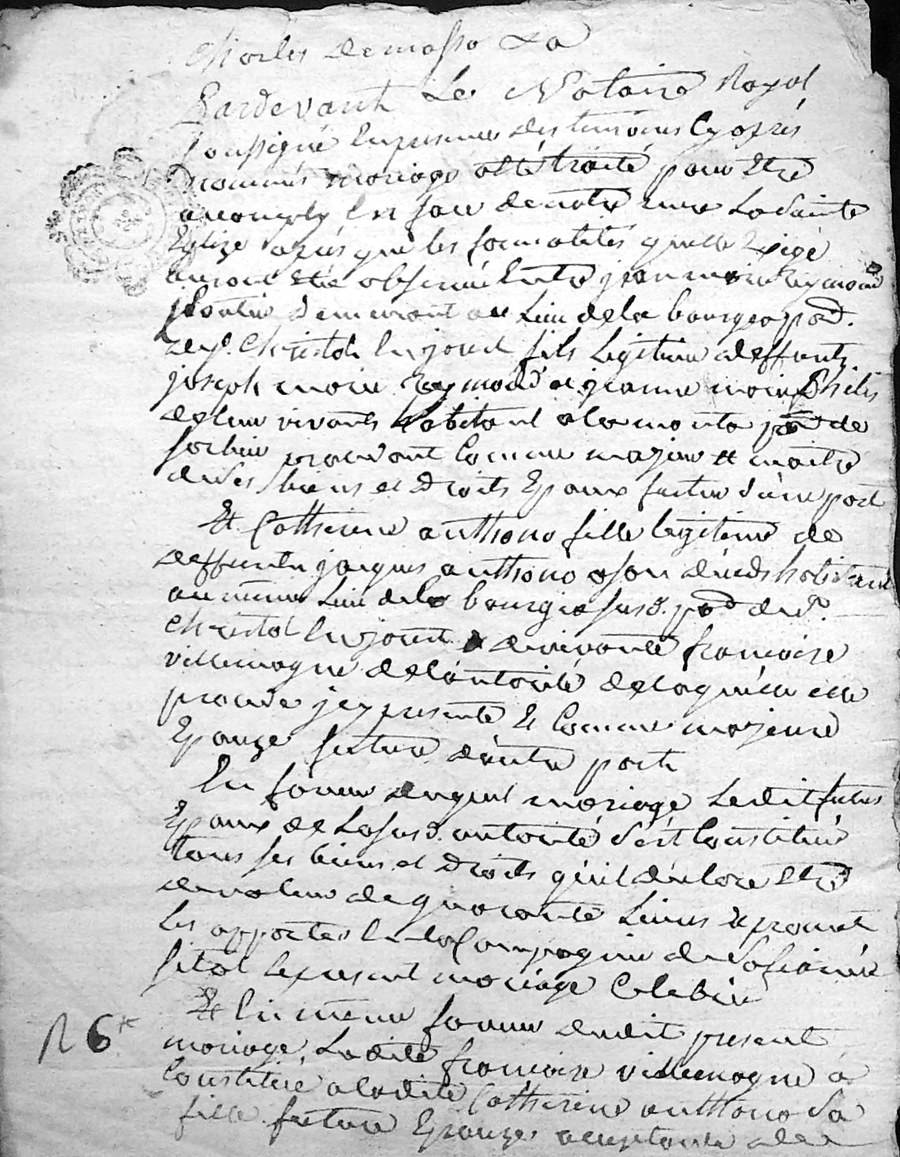 Pardevant Le Notaire Royal
soussigné En presence des temoins cy aprés
nommés mariage a eté traité pour Etre
acomply En face de notre mere La Sainte
Eglize apés que les formalités quelle Exige
auront eté observé Entre jean moin Reymond
demeurant au Lieu de la bourgea pad.
de st. Christol En jouct fils Legitime a deffunts
joseph moin Reymond et jeanne moin
de leur vivants habitant a la pad de
procedant Comme majeur et maitre
de Ses biens et Droits Epoux futur d'une part
Et Catherine authono fille legitime de
deffunt jacques authono a son habitant
au meme Lieu de la bourgea susd. pad de st.
Christol En jouct & de vivante francoise
villemagne de l'autorité de laquelle elle
procede jcy presente Et Comme majeure
Epouze future d'autre part
En faveur duquel mariage Ledit futur
Epoux de La susd. autorité S'est Constitué
tous ses biens et Droits qu'il declare Etre
de valeur de quarante Livres Et promet
les apporter En la Compagnie de Sa fiancée
sitot Le present mariage Celebré
Et En meme faveur dudit present
mariage, Ladite francoise villemagne a
Constitué a ladite Catherine authono Sa
fille future Epouze, acceptante